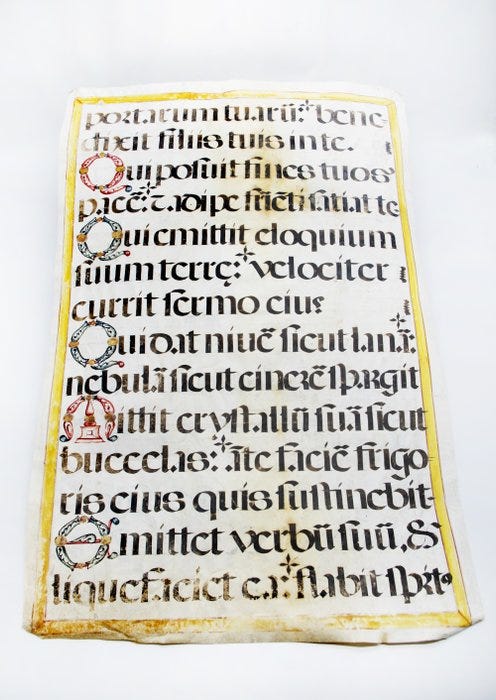 portarum tuarū: bene-
dixit filiis tuis in te.
Qui posuit fines tuos
pacē: & adipe frumēti satiat te
Qui emittit eloquium
suum terrę: velociter
currit sermo eius
Qui dat nivē sicut lanā:
nebulā sicut cinerē spargit
Mittit crystallū suā sicut
buccellas: āte faciē frigo-
ris eius quis sustinebit
Emittet verbū suū, &
liquefaciet ea: flabit